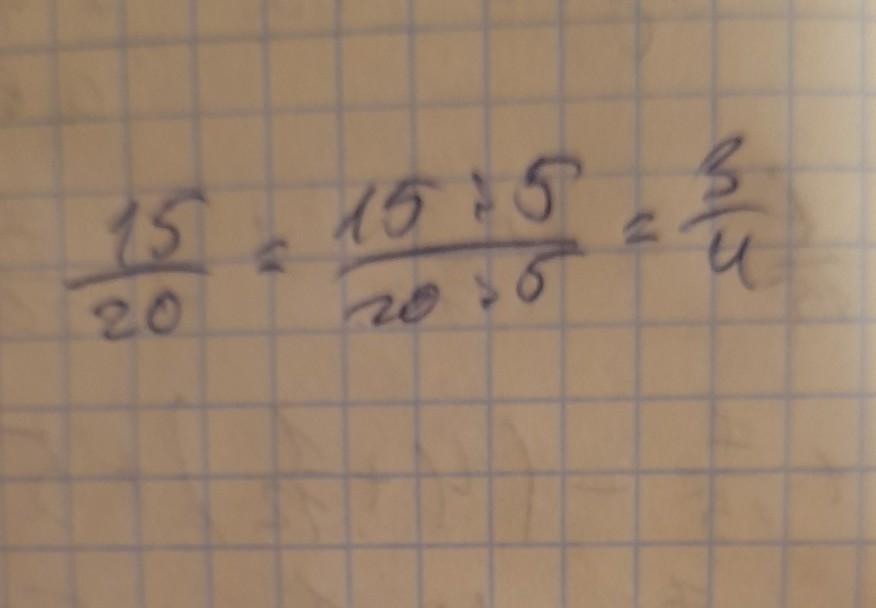 15/20 = 15:5/20:5 = 3/4